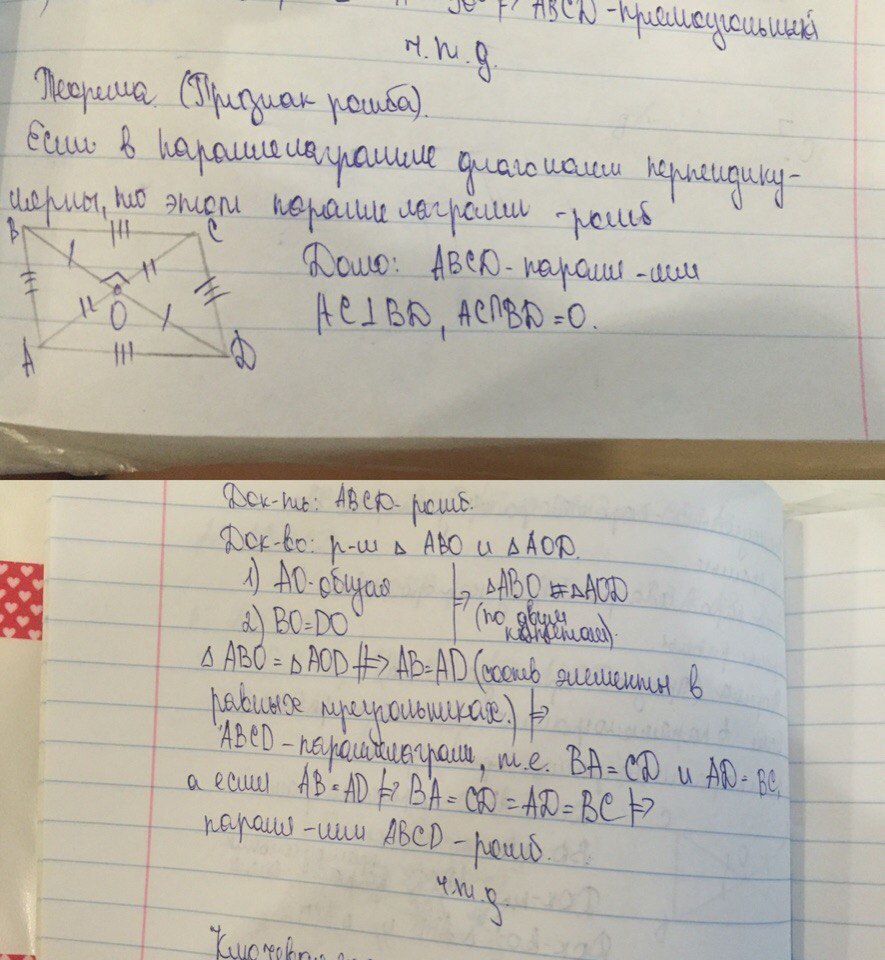 ABCD - прямоугольник
ч.т.д.
Теорема. (Признак ромба).
Если в параллелограмме диагонали перпендику-
лярны, то этот параллелограмм - ромб
B C
O
A D
Дано: ABCD - паралл-мм
AC⊥BD, AC∩BD=O.
Док-ть: ABCD - ромб.
Док-во: р-м △ ABO и △ AOD.
1) AO-общая
2) BO=DO
⇒ △ABO = △AOD
(по двум
катетам).
△ ABO = △ AOD ⇒ AB=AD (соотв элементы в
равных треугольниках.) ⇒
ABCD - параллелограмм, т.е. BA = CD и AD = BC,
а если AB = AD ⇒ BA = CD = AD = BC ⇒
паралл-мм ABCD - ромб.
ч.т.д